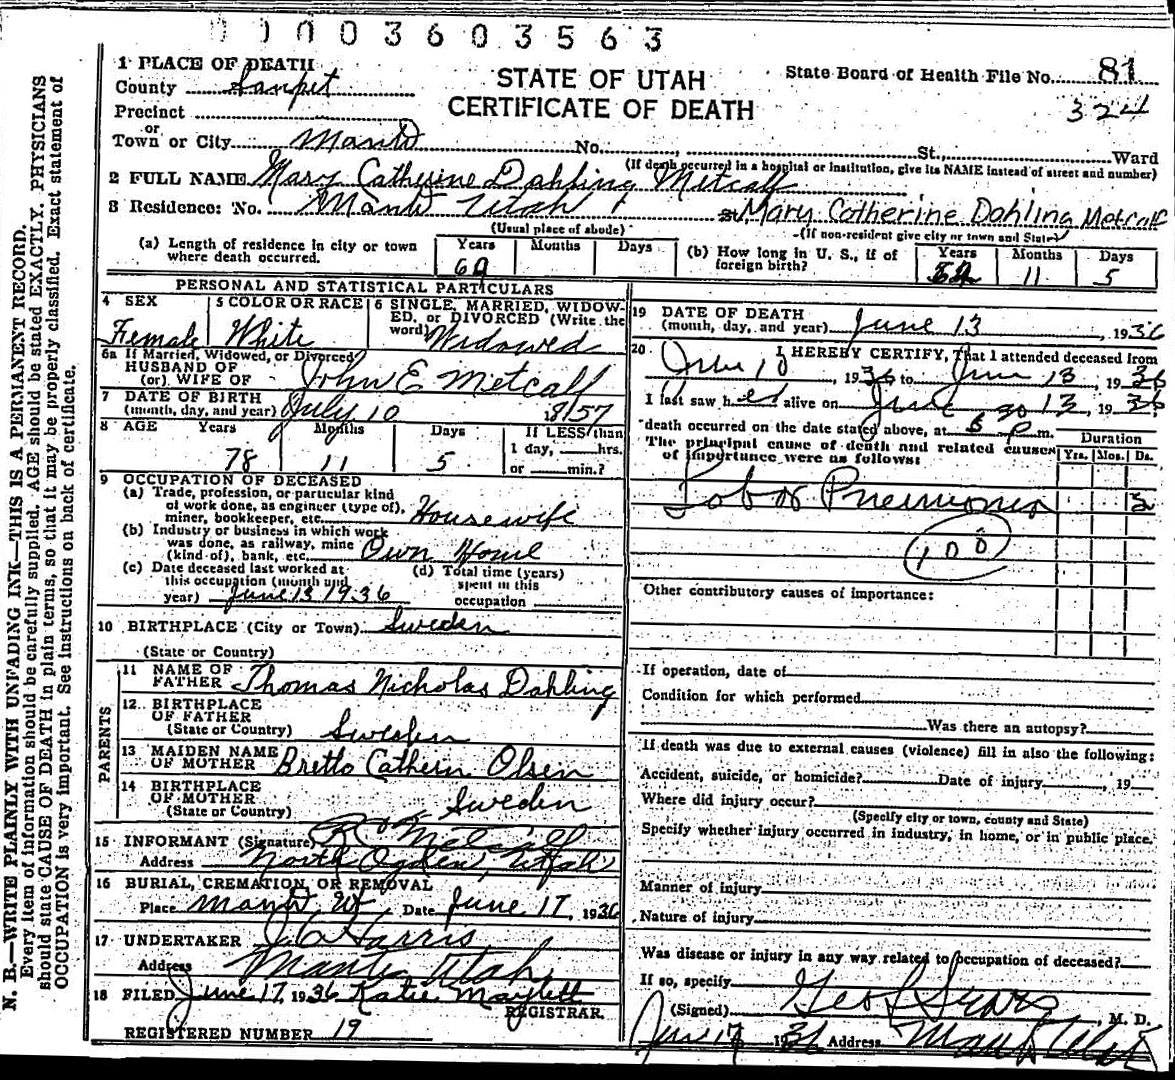 0 1 0 0 3 6 0 3 5 6 3
N. B.—WRITE PLAINLY WITH UNFADING INK—THIS IS A PERMANENT RECORD.
Every item of information should be carefully supplied. AGE should be stated EXACTLY. PHYSICIANS
should state CAUSE OF DEATH in plain terms, so that it may be properly classified. Exact statement of
OCCUPATION is very important. See instructions on back of certificate.
STATE OF UTAH
CERTIFICATE OF DEATH
State Board of Health File No. 81
324
1 PLACE OF DEATH
County Sanpet
Precinct
or
Town or City Manti No. , St., Ward
(If death occurred in a hospital or institution, give its NAME instead of street and number)
2 FULL NAME Mary Catherine Dahling Metcalf
3 Residence: No. Manti Utah St. Mary Catherine Dahling Metcalf
(Usual place of abode) (If non-resident give city or town and State)
(a) Length of residence in city or town where death occurred. Years Months Days
69
(b) How long in U. S., if of foreign birth? Years Months Days
11 5
PERSONAL AND STATISTICAL PARTICULARS
4 SEX Female
5 COLOR OR RACE White
6 SINGLE, MARRIED, WIDOWED, or DIVORCED (Write the word) Widowed
6a If Married, Widowed, or Divorced
HUSBAND OF
(or) WIFE OF John E Metcalf
7 DATE OF BIRTH
(month, day, and year) July 10 1857
8 AGE Years Months Days If LESS than
1 day, hrs.
or min.?
78 11 5
9 OCCUPATION OF DECEASED
(a) Trade, profession, or particular kind
of work done, as engineer (type of),
miner, bookkeeper, etc. Housewife
(b) Industry or business in which work
was done, as railway, mine
(kind of), bank, etc. Own Home
(c) Date deceased last worked at
this occupation (month and
year) June 13 1936
(d) Total time (years)
spent in this
occupation
10 BIRTHPLACE (City or Town) Sweden
(State or Country)
PARENTS
11 NAME OF
FATHER Thomas Nicholas Dahling
12 BIRTHPLACE
OF FATHER
(State or Country) Sweden
13 MAIDEN NAME
OF MOTHER Bretto Cathern Olsen
14 BIRTHPLACE
OF MOTHER
(State or Country) Sweden
15 INFORMANT (Signature) Metcalf
Address North Ogden, Utah
16 BURIAL, CREMATION, OR REMOVAL
Place Manti Ut Date June 17, 1936
17 UNDERTAKER J. A Harris
Address Manti Utah
18 FILED June 17, 1936 Katie Maylett
REGISTRAR.
REGISTERED NUMBER 19
19 DATE OF DEATH
(month, day, and year) June 13, 1936
20 I HEREBY CERTIFY, That I attended deceased from
June 10, 1936 to June 13, 1936
I last saw her alive on June 13, 1936
death occurred on the date stated above, at 5 p m.
The principal cause of death and related causes
of importance were as follows:
Duration
Yrs. Mos. Ds.
Lobar Pneumonia 3
108
Other contributory causes of importance:
If operation, date of
Condition for which performed
Was there an autopsy?
If death was due to external causes (violence) fill in also the following:
Accident, suicide, or homicide? Date of injury , 19
Where did injury occur?
(Specify city or town, county and State)
Specify whether injury occurred in industry, in home, or in public place.
Manner of injury
Nature of injury
Was disease or injury in any way related to occupation of deceased?
If so, specify
(Signed) Geo L Sears, M. D.
June 17 1936 Address Manti Utah